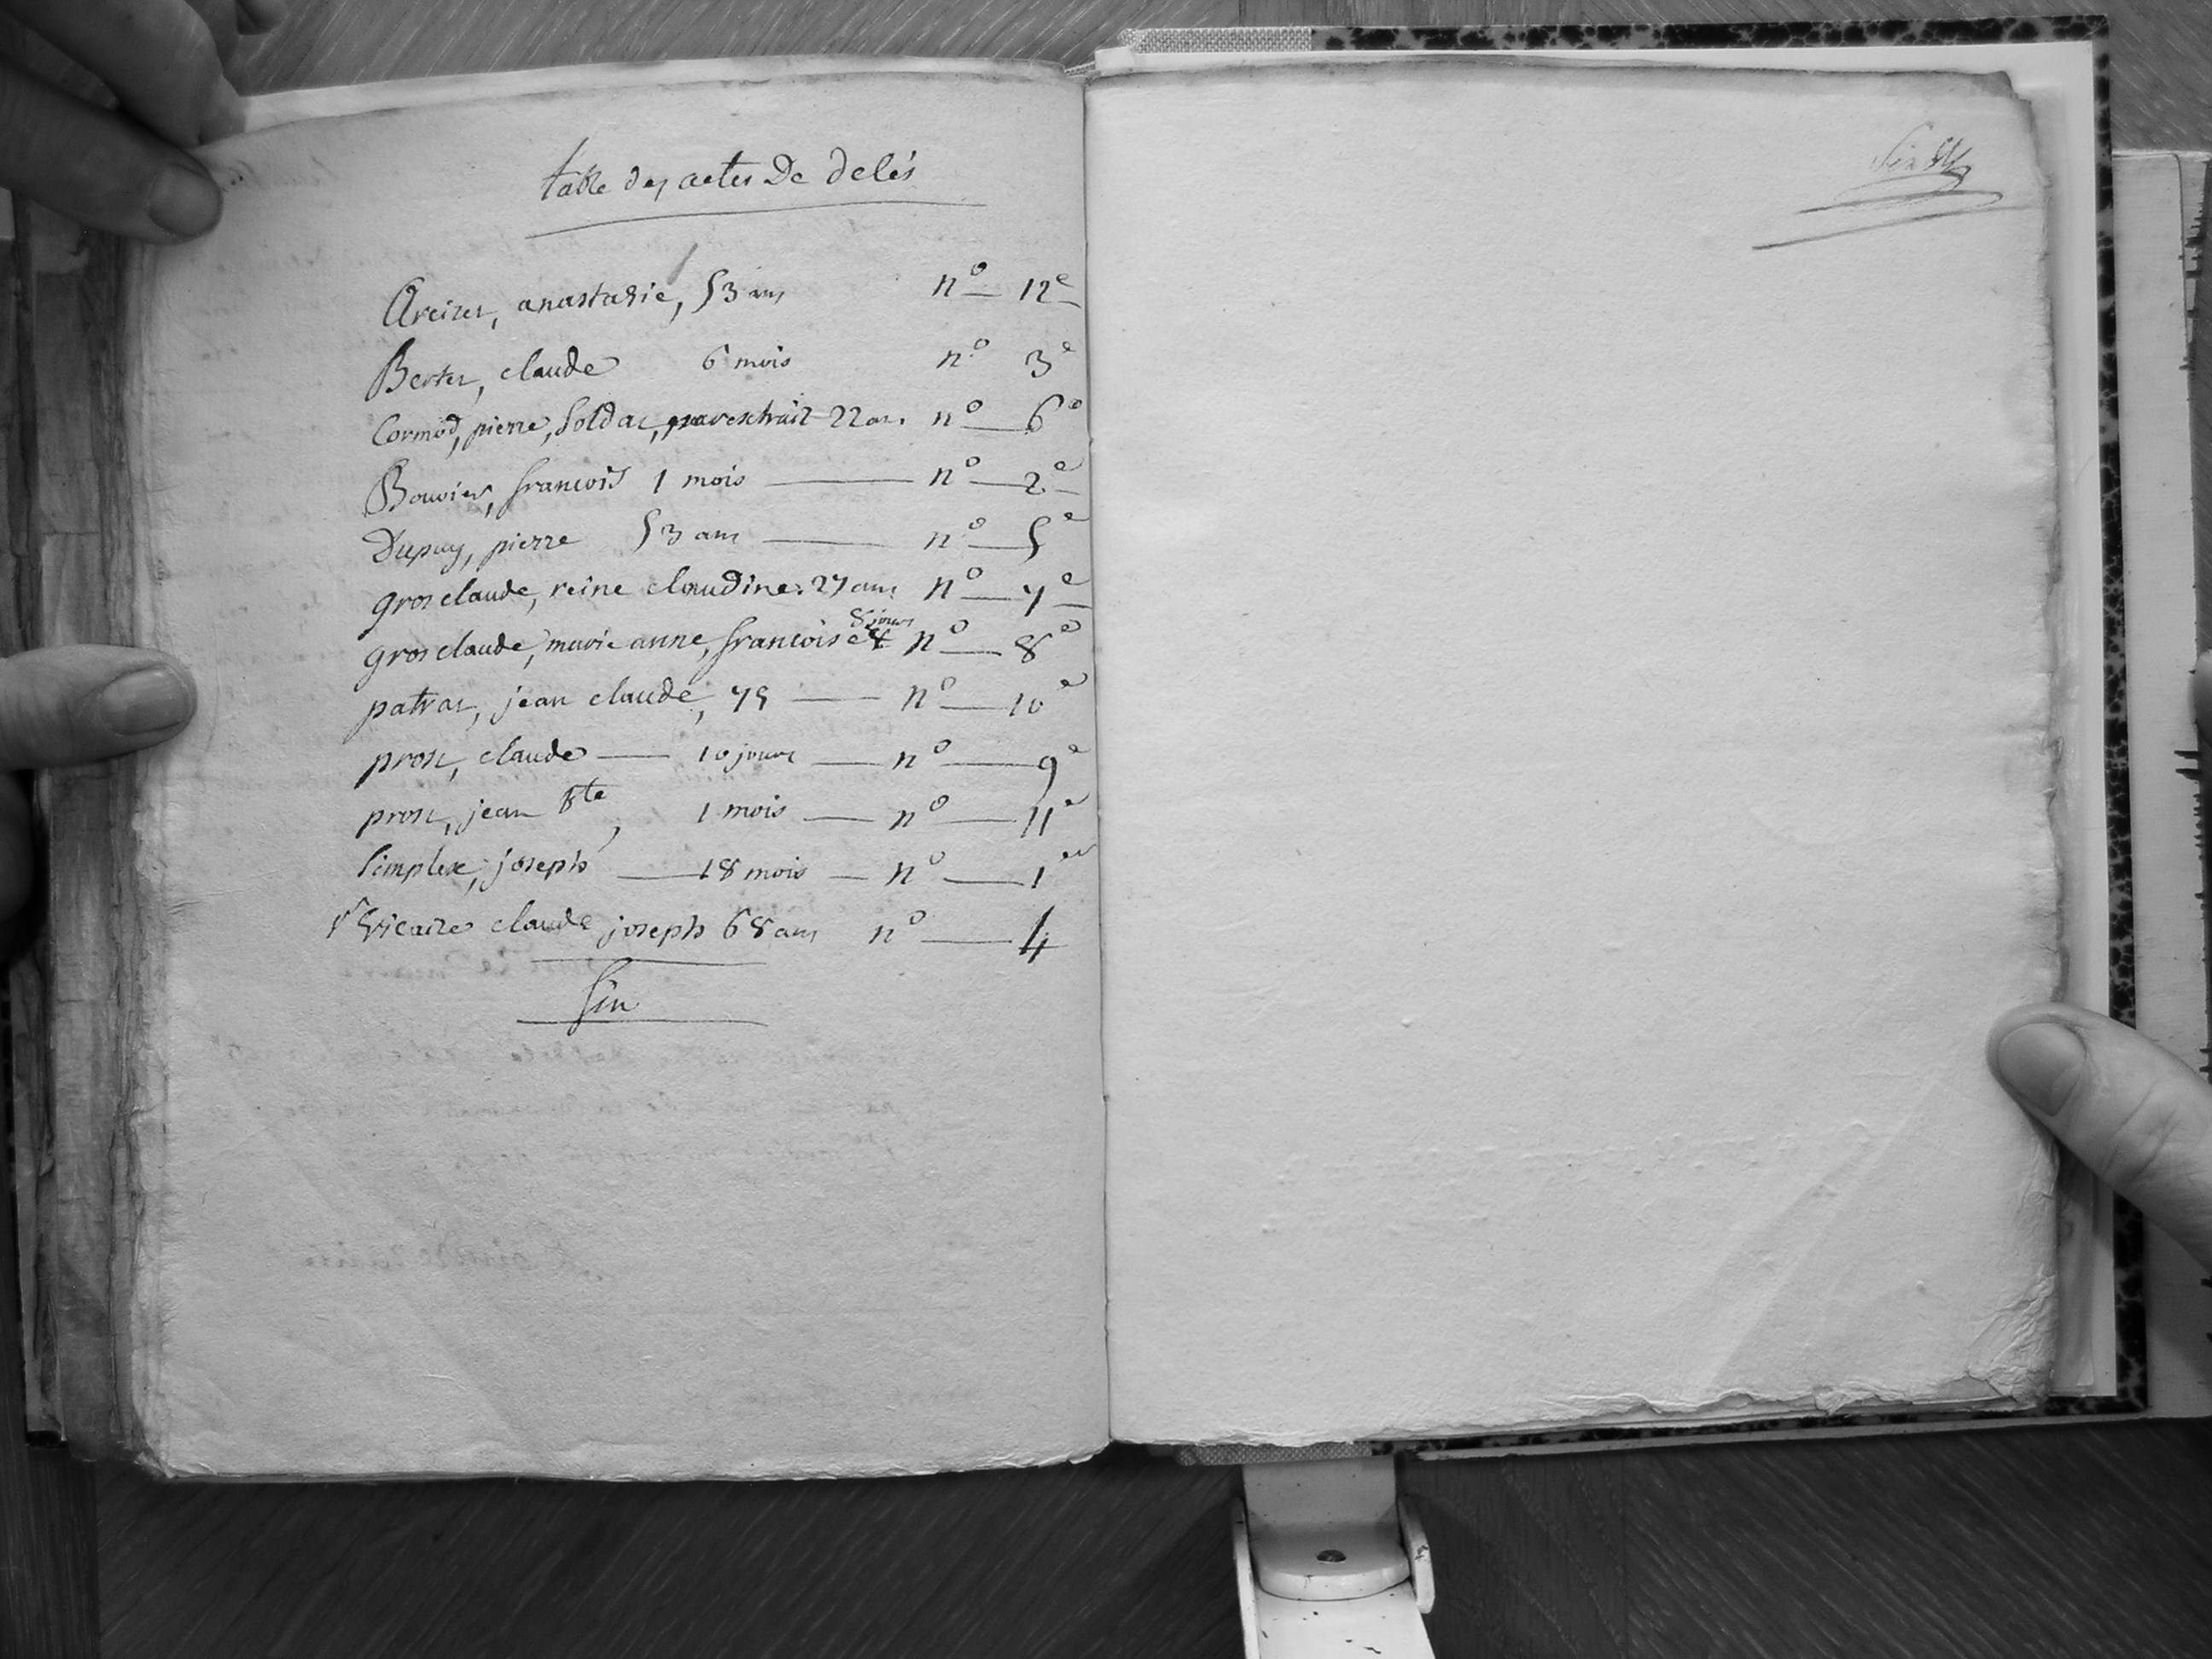 table des actes De delés
Areizer, anastasie, 53 ans n° 12e
Berter, claude 6 mois n° 3e
Cormod, pierre, soldat, 22 an. n° 6e
Bouvier, francois 1 mois n° 2e
Dupuy, pierre 53 ans n° 5e
gros claude, reine claudine: 27 ans n° 7e
8 jours
gros claude, marie anne, francois et n° 8e
patras, jean claude, 75 n° 10e
prost, claude 10 jours n° 9e
prost, jean bte, 1 mois n° 11e
simplex, joseph 18 mois n° 1er
vicaire claude joseph 68 ans n° 4
fin